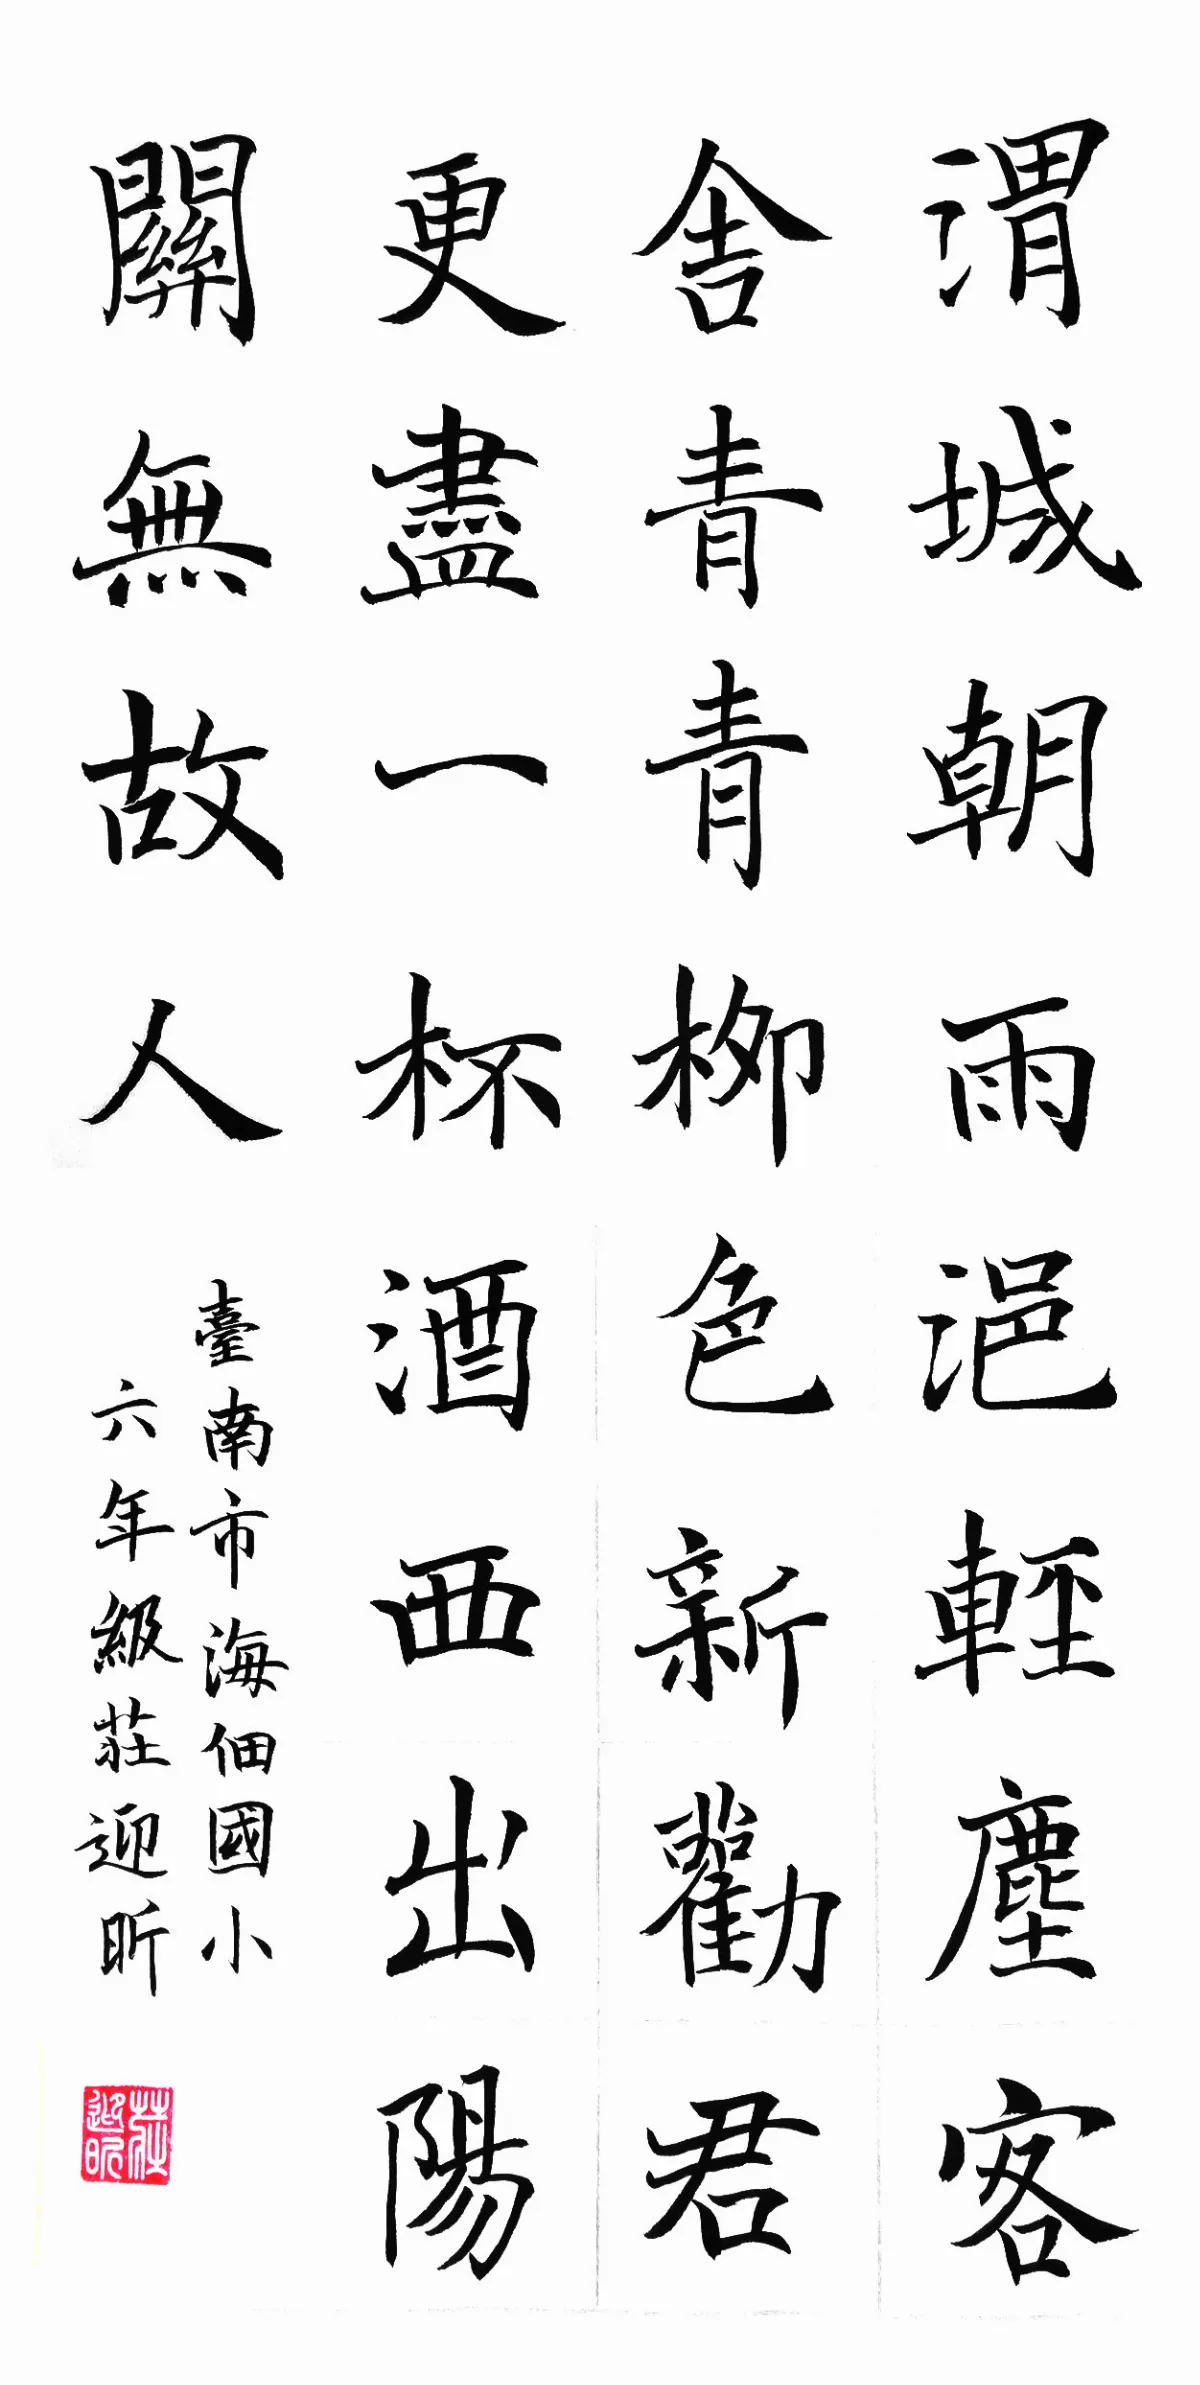 渭城朝雨浥輕塵客
舍青青柳色新勸君
更盡一杯酒西出陽
關無故人
臺南市海佃國小
六年級莊迎昕
莊迎昕